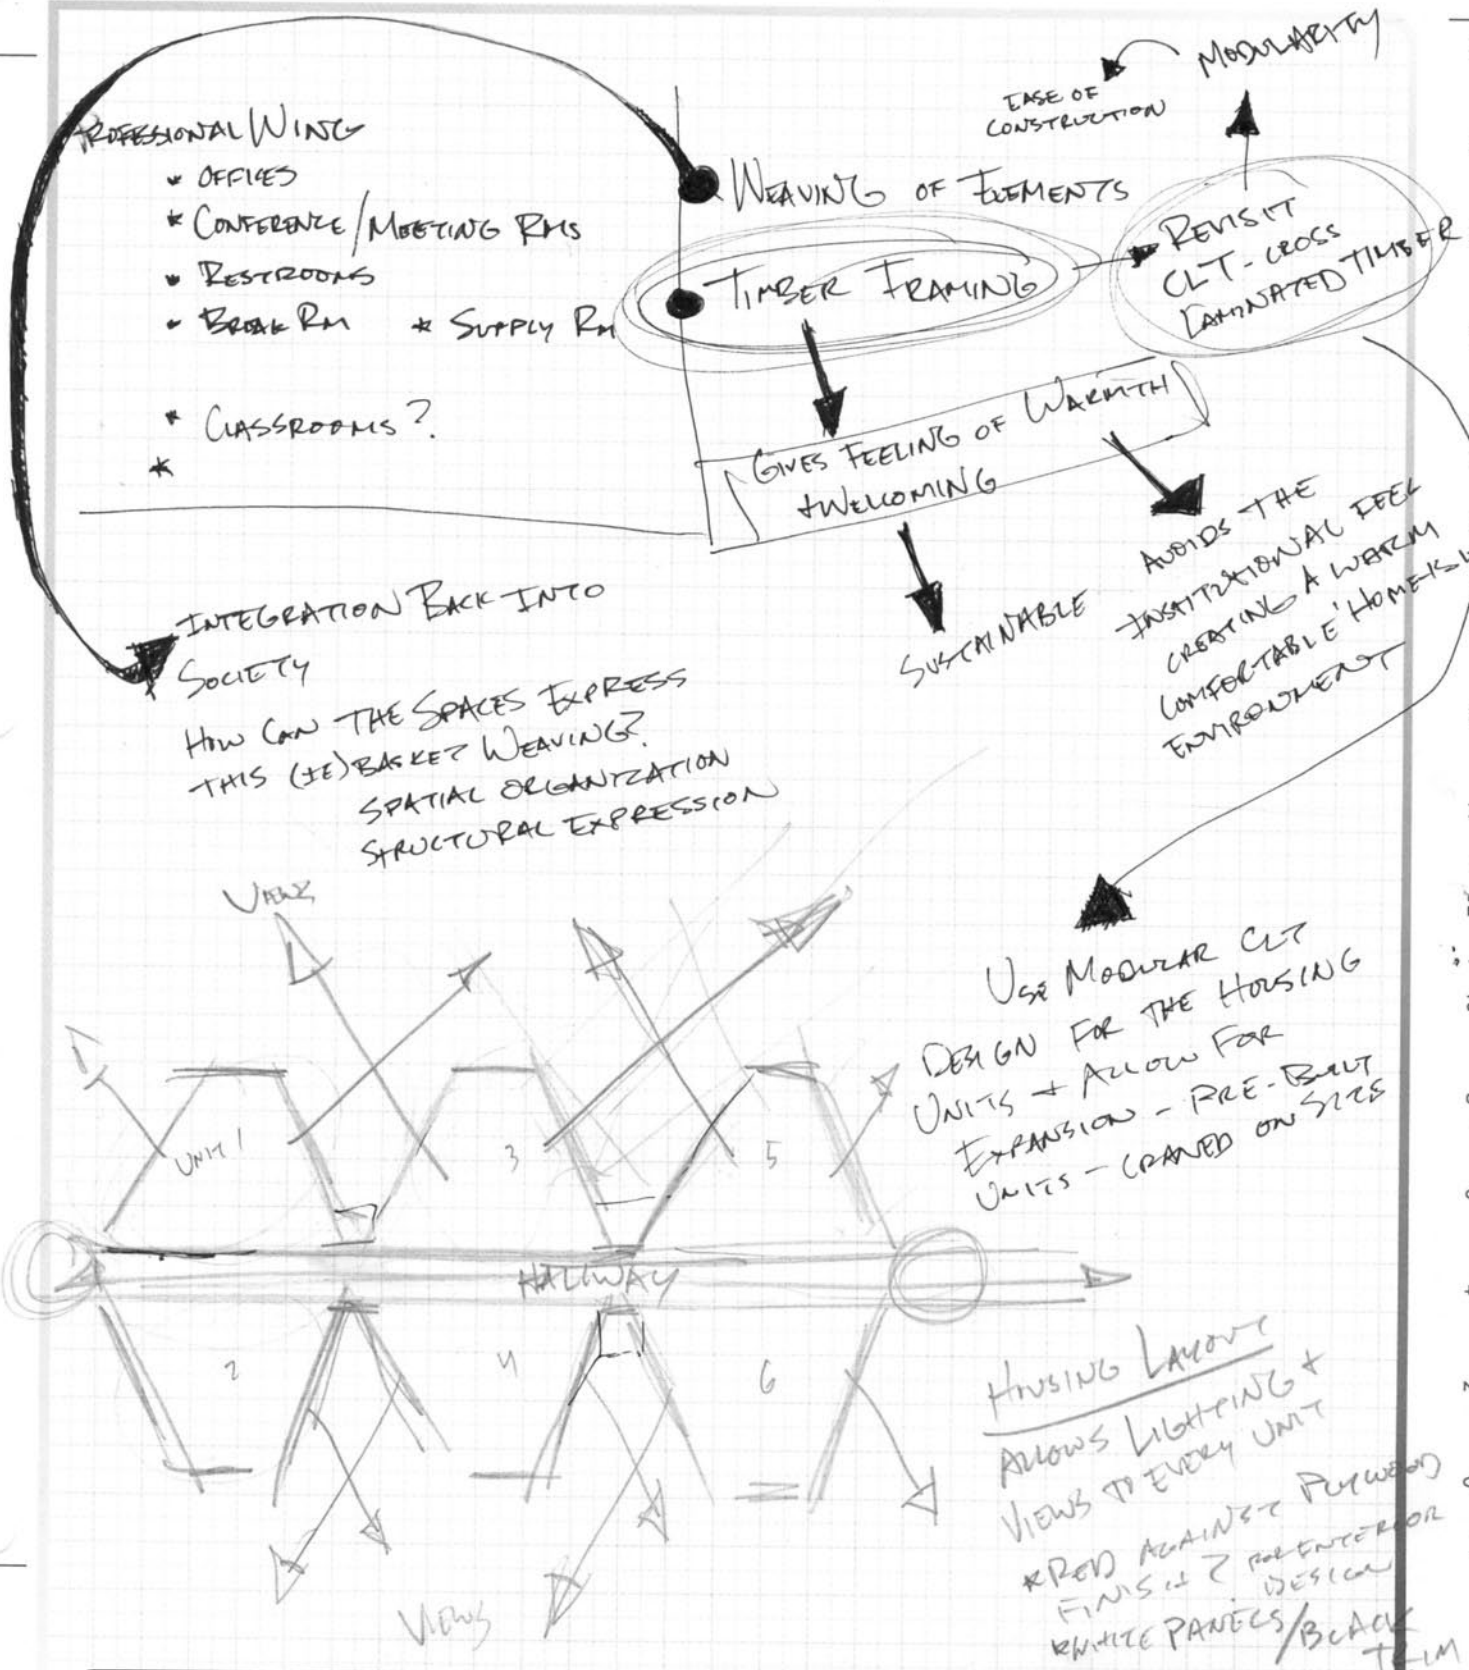 PROFESSIONAL WING
* OFFICES
* CONFERENCE/MEETING RMS
* RESTROOMS
* BREAK RM * SUPPLY RM
* CLASSROOMS?
*
MODULARITY
EASE OF
CONSTRUCTION
WEAVING OF ELEMENTS
TIMBER FRAMING
REVISIT
CLT - CROSS
LAMINATED TIMBER
GIVES FEELING OF WARMTH
+ WELCOMING
SUSTAINABLE
AVOIDS THE
INSTITUTIONAL FEEL
CREATING A WARM
COMFORTABLE 'HOME-ISH
ENVIRONMENT
INTEGRATION BACK INTO
SOCIETY
HOW CAN THE SPACES EXPRESS
THIS (IE) BASKET WEAVING?
SPATIAL ORGANIZATION
STRUCTURAL EXPRESSION
USE MODULAR CLT
DESIGN FOR THE HOUSING
UNITS + ALLOW FOR
EXPANSION - PRE-BUILT
UNITS - CRANED ON SITE
VIEWS
UNIT 1
3
5
HALLWAY
2
4
6
VIEWS
HOUSING LAYOUT
ALLOWS LIGHTING +
VIEWS TO EVERY UNIT
* RED AGAINST PLYWOOD
FINISH? FOR INTERIOR
DESIGN
* WHITE PANELS/BLACK
TRIM